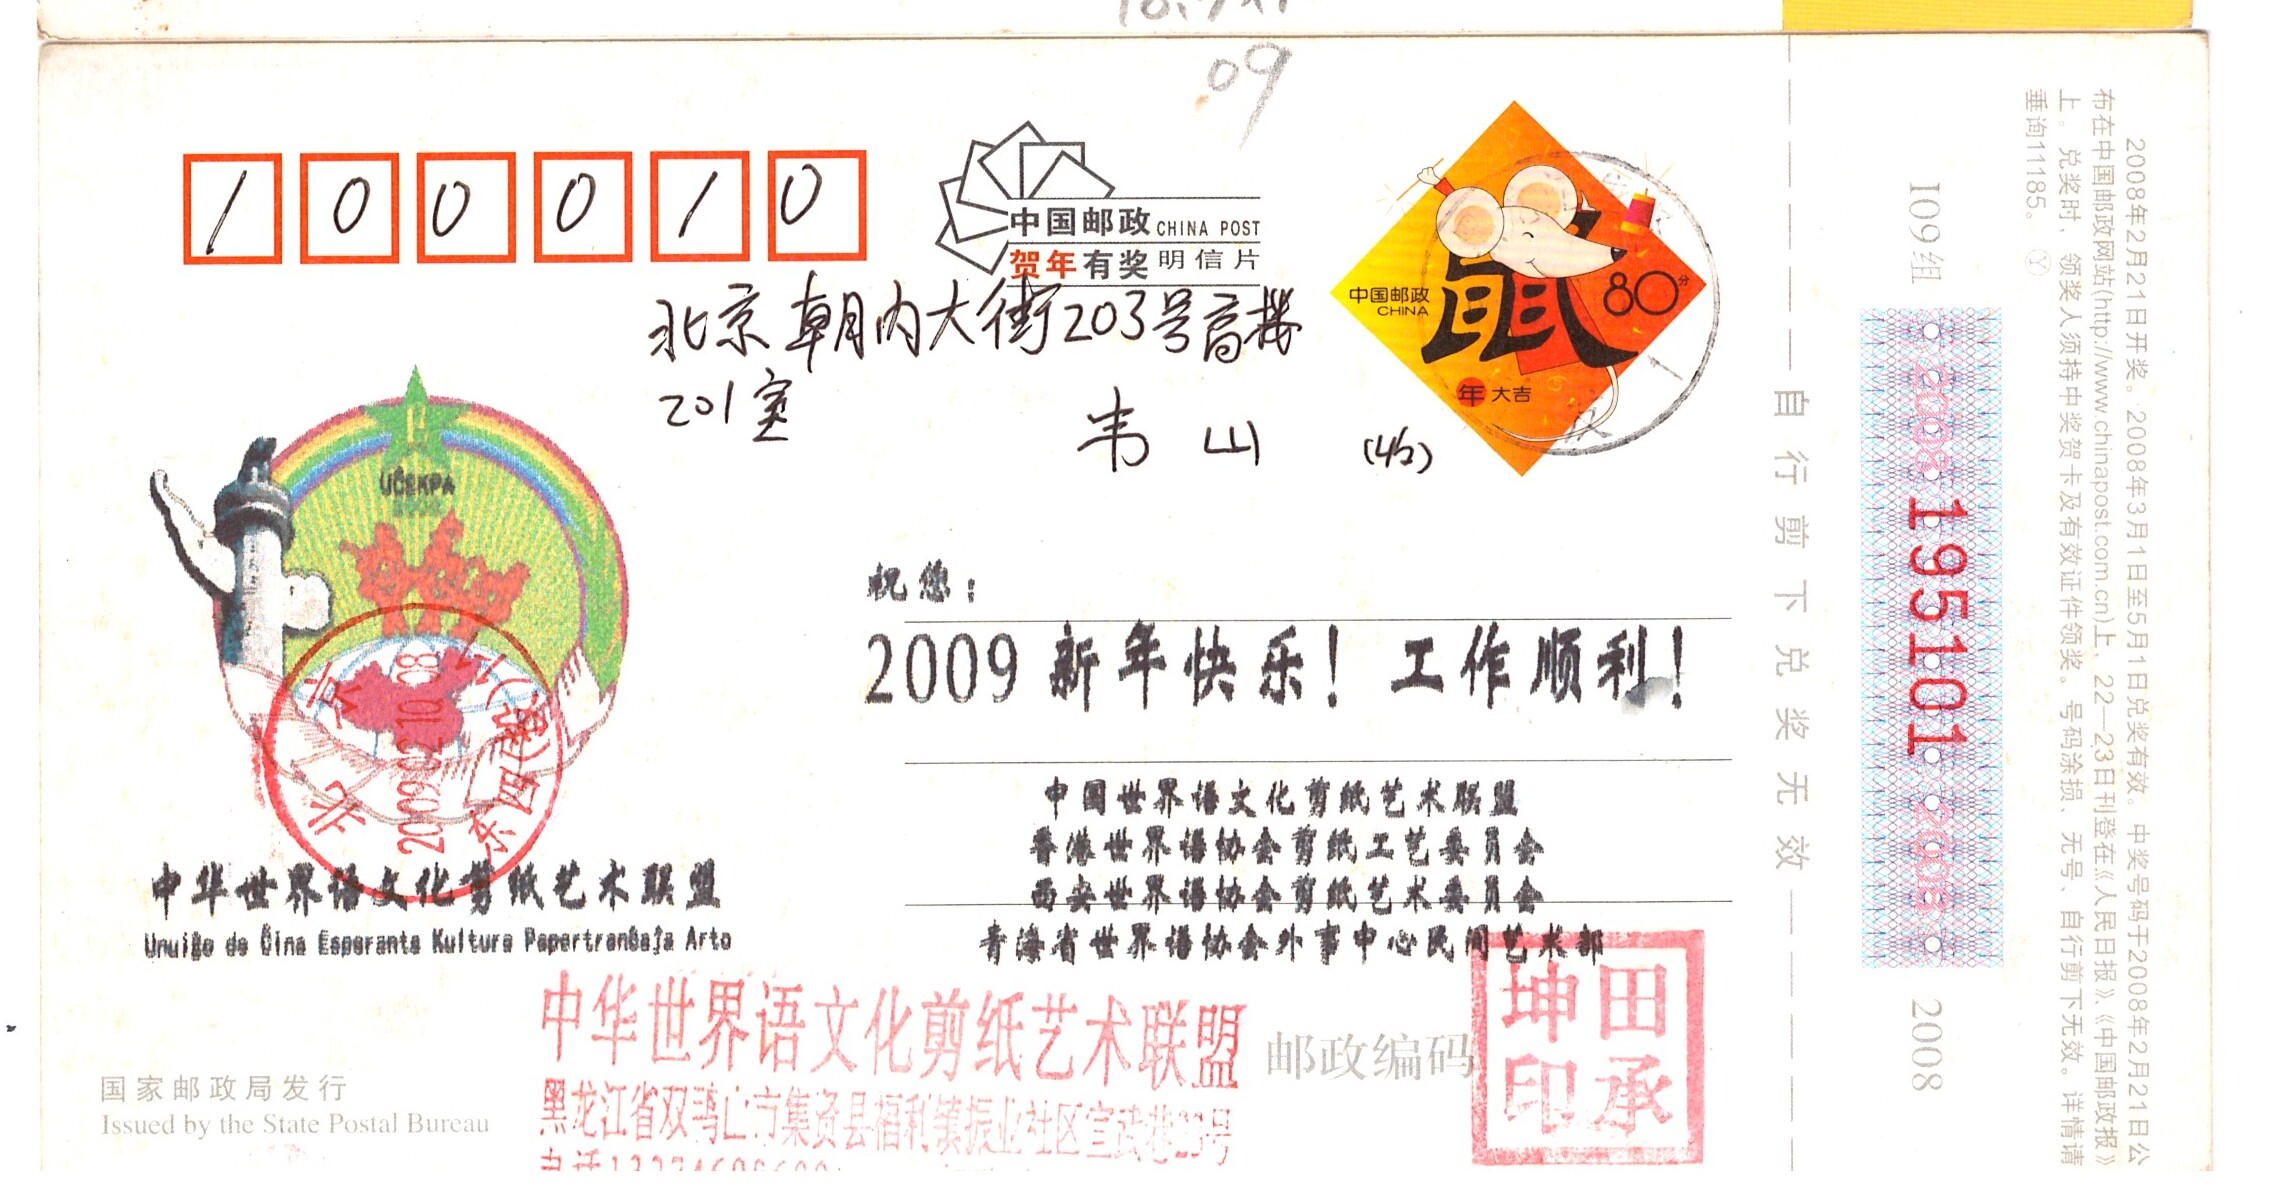 09
100010
中国邮政 CHINA POST
贺年有奖 明信片
中国邮政
CHINA
鼠
80分
年大吉
北京朝内大街203号高楼
201室
韦山
UĈEKPA
祝您：
2009 新年快乐！工作顺利！
中国世界语文化剪纸艺术联盟
香港世界语协会剪纸工艺委员会
西安世界语协会剪纸艺术委员会
青海省世界语协会外事中心民间艺术部
北京
2009.02.10.08
东四(南)
中华世界语文化剪纸艺术联盟
Unuiĝo de Ĉina Esperanta Kultura Papertranĉaĵa Arto
中华世界语文化剪纸艺术联盟
黑龙江省双鸭山市集贤县福利镇振业社区宣武巷23号
电话
邮政编码
田承坤印
国家邮政局发行
Issued by the State Postal Bureau
自行剪下兑奖无效
I09组
2008 195101 2008
2008
2008年2月21日开奖。2008年3月1日至5月1日兑奖有效。中奖号码于2008年2月21日公
布在中国邮政网站(http://www.chinapost.com.cn)上，22—23日刊登在《人民日报》、《中国邮政报》
上。兑奖时，领奖人须持中奖贺卡及有效证件领奖。号码涂损、无号、自行剪下无效。详情请
垂询11185。Ⓨ